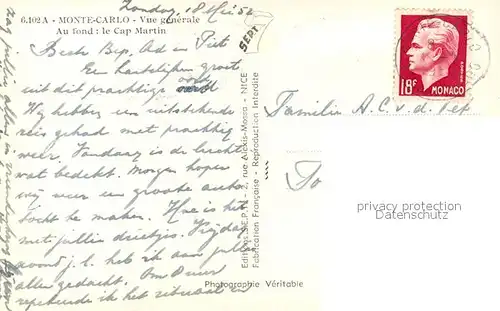 Zondag, 18 Mei 52
6.402A - MONTE-CARLO - Vue générale
Au fond : le Cap Martin
Beste Bep, Ad en Piet
Een hartelijken groet
uit dit prachtige oord
Wij hebben een uitstekende
reis gehad met prachtig
weer. Vandaag is de lucht
wat bedekt. Morgen hopen
wij weer een groote auto
tocht te maken. Hoe is het
met jullie drietjes. Vrijdag
avond j.l. heb ik aan jullie
allen gedacht. Om
ik het
SEPT
Editions S.E.P.T. - 2, rue Alexis-Mossa - NICE
Fabrication Française - Reproduction Interdite
Photographie Véritable
18F
MONACO
Familie A. C. v. d. Pet
To
privacy protection
watermark
zag jullie allen in